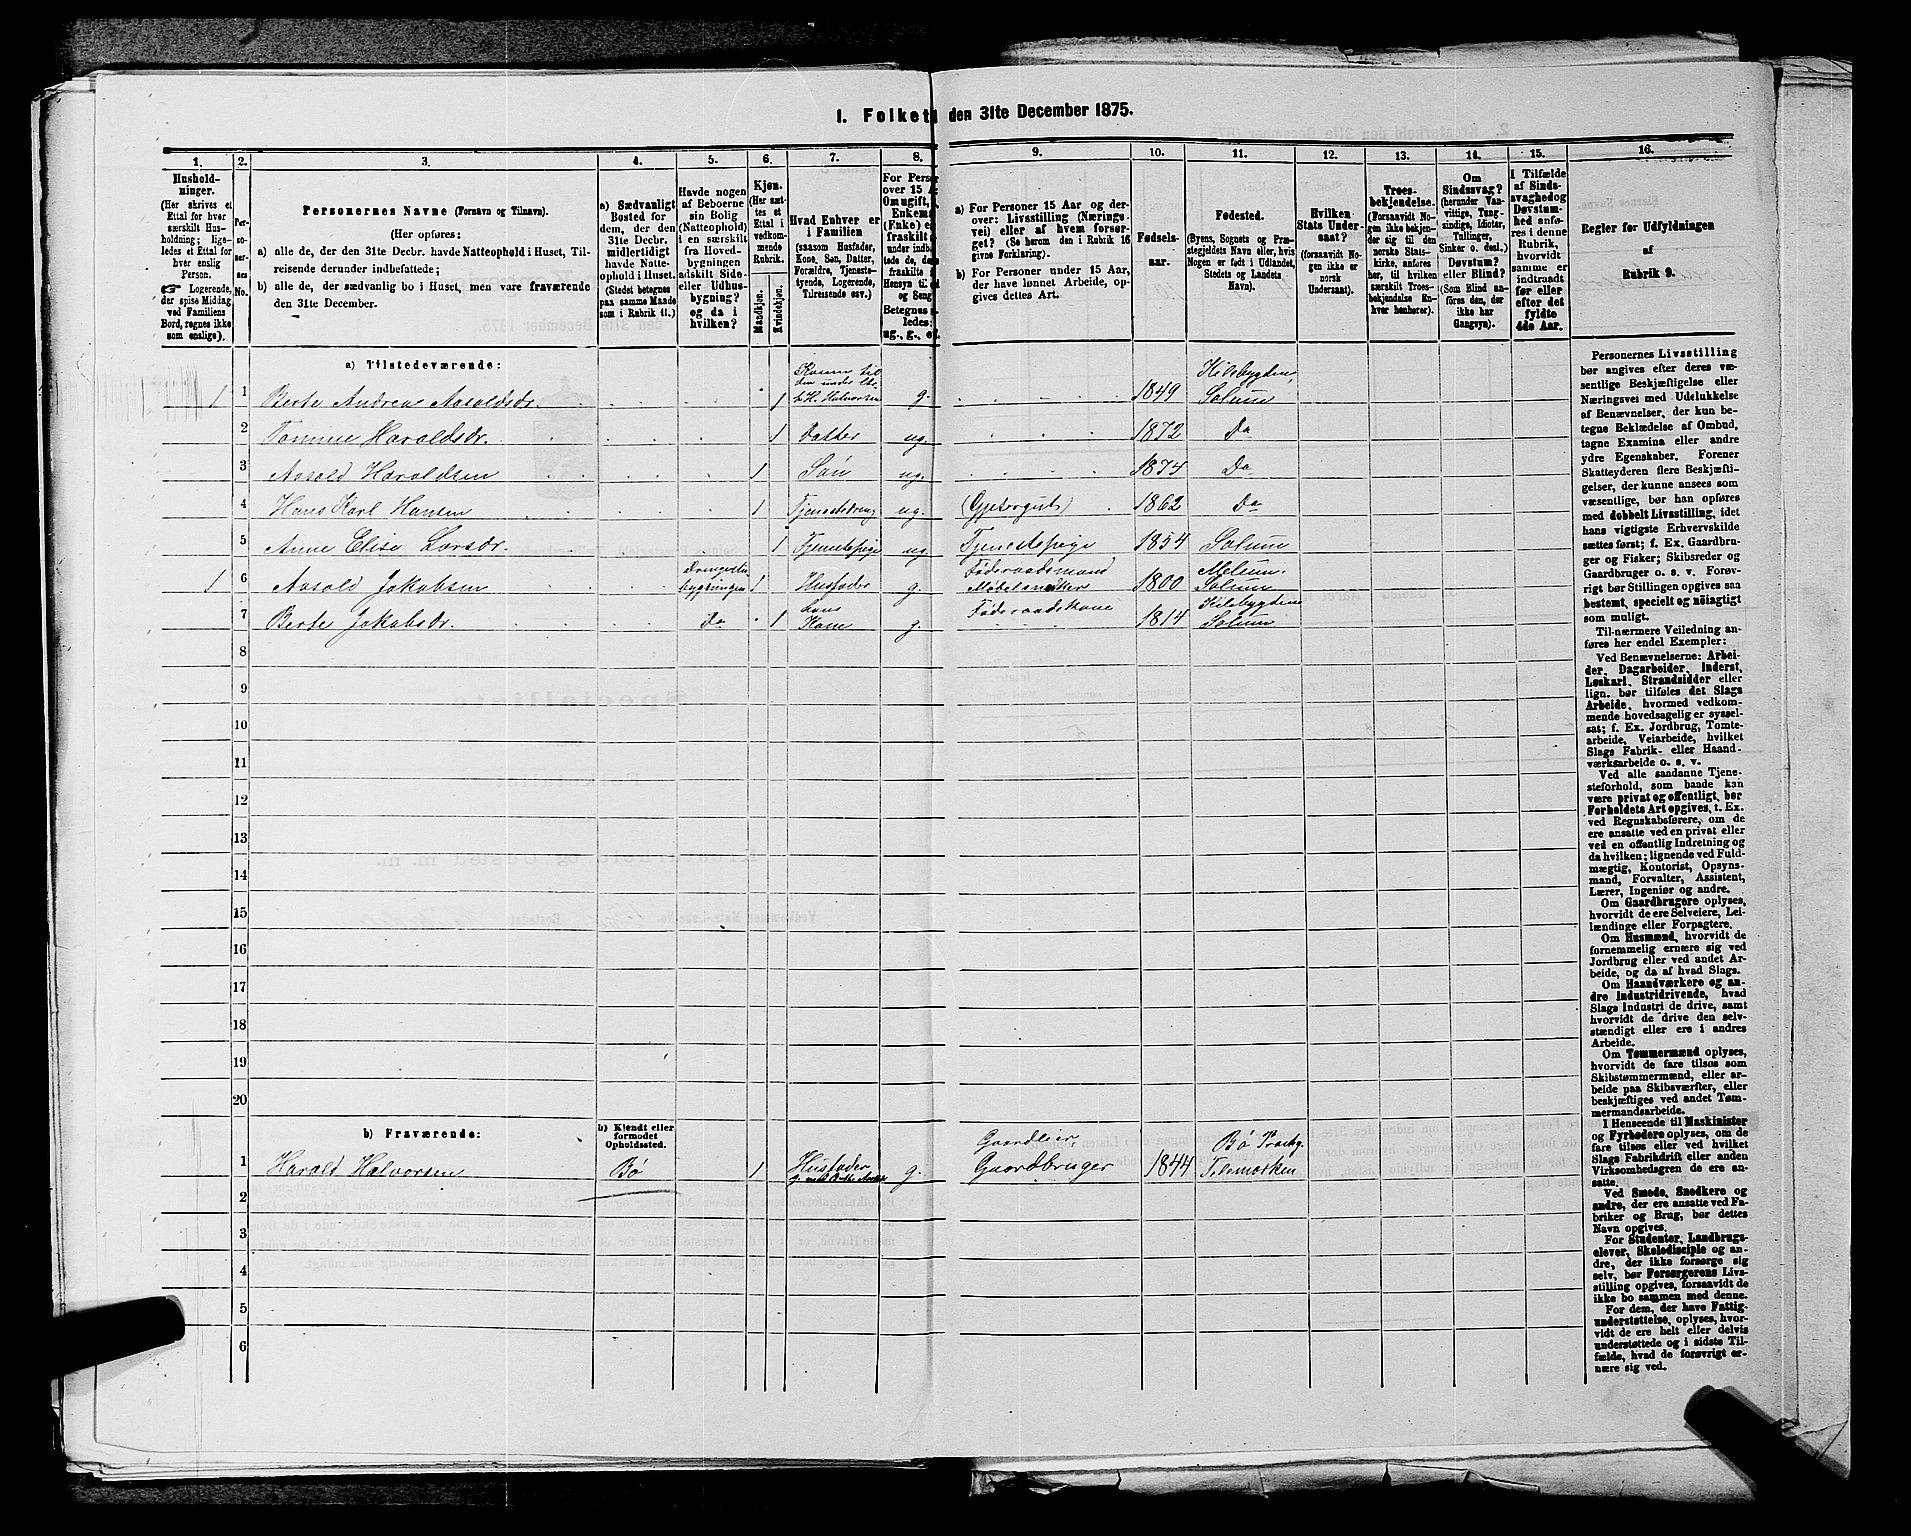 1. Folket den 31te December 1875.
1. 2. 3. 4. 5. 6. 7. 8. 9. 10. 11. 12. 13. 14. 15. 16.
Hushold-
ninger.
(Her skrives et
Ettal for hver
særskilt Hus-
holdning; lige-
ledes et Ettal
for hver enslig
Person.
Logerende,
der spise Middag
ved Familiens
Bord, regnes ikke
som enslige).
Per-
so-
ner-
nes
No.
Personernes Navne (Fornavn og Tilnavn).
(Her opføres:
a) alle de, der den 31te Decbr. havde Natteophold i Huset, Til-
reisende derunder indbefattede;
b) alle de, der sædvanlig bo i Huset, men vare fraværende
den 31te December.
a) Sædvanligt
Bosted for
dem, der den
31te Decbr.
midlertidigt
havde Natte-
ophold i Huset.
(Stedet betegnes
paa samme Maade
som i Rubrik 11.)
Havde nogen
af Beboerne
sin Bolig
(Natteophold)
i en særskilt
fra Hoved-
bygningen
adskilt Side-
eller Udhus-
bygning?
og da i
hvilken?
Kjøn.
(Her sæt-
tes et
Ettal i
vedkom-
mende
Rubrik.
Mandkjøn.
Kvindekjøn.
Hvad Enhver er
i Familien
(saasom Husfader,
Kone, Søn, Datter,
Forældre, Tjeneste-
tyende, Logerende,
Tilreisende osv.)
For Perso
over 15 A
Om ugift,
Enkem
(Enke) e
fraskilt
under indb
tede de, de
fraskilte
Hensyn til
og Seng
Betegnes
ledes:
ug., g., e
a) For Personer 15 Aar og der-
over: Livsstilling (Nærings-
vei) eller af hvem forsør-
get? (Se herom den i Rubrik 16
givne Forklaring).
b) For Personer under 15 Aar,
der have lønnet Arbeide, op-
gives dettes Art.
Fødsels-
aar.
Fødested.
(Byens, Sognets og Præ-
stegjeldets Navn eller, hvis
Nogen er født i Udlandet,
Stedets og Landets
Navn).
Hvilken
Stats Under-
saat?
(forsaavidt No-
gen ikke er
norsk
Undersaat).
Troes-
bekjendelse.
(Forsaavidt No-
gen ikke bekjen-
der sig til den
norske Stats-
kirke, anføres
her, til hvilken
særskilt Troes-
bekjendelse En-
hver henhører).
Om
Sindssvag?
(herunder Vaa-
vittige, Tung-
sindige, Idioter,
Tullinger,
Sinker o. desl.)
Døvstum?
eller Blind?
(Som Blind an-
føres den, der
ikke har
Gangsyn).
I Tilfælde
af Sinds-
svaghed og
Døvstum-
hed anfø-
res i denne
Rubrik,
hvorvidt
samme er
indtraadt
før eller
efter det
fyldte
4de Aar.
Regler for Udfyldningen
af
Rubrik 9.
a) Tilstedeværende:
1 1 Berte Andrea Aasoldsdr. 1 g. 1849 Kilebygden, Solum
2 Tomine Haroldsdr. 1 Datter ug. 1872 Do
3 Aasold Haroldsen 1 Søn ug. 1874 Do
4 Hans Karl Hansen 1 Tjenestedreng ug. (Gjetergut) 1862 Do
5 Anne Elise Larsdr. 1 Tjenestepige ug. Tjenestepige 1854 Solum
1 6 Aasold Jakobsen 1 Husfader g. Føderaadsmand 1800 Melum, Solum
7 Berte Jakobsdr. Do 1 hans Kone g. Føderaadskone 1814 Kilebygden Solum
8
9
10
11
12
13
14
15
16
17
18
19
20
b) Fraværende:
b) Kjendt eller
formodet
Opholdssted.
1 Harold Halvorsen Bø 1 Husfader g. Gaardeier, Gaardbruger 1844 Bø Præstg. Telemarken
2
3
4
5
6
Personernes Livsstilling
bør angives efter deres væ-
sentlige Beskjæftigelse eller
Næringsvei med Udelukkelse
af Benævnelser, der kun be-
tegne Beklædelse af Ombud,
tagne Examina eller andre
ydre Egenskaber. Forener
Skatteyderen flere Beskjæfti-
gelser, der kunne ansees som
væsentlige, bør han opføres
med dobbelt Livsstilling, idet
hans vigtigste Erhvervskilde
sættes først; f. Ex. Gaardbru-
ger og Fisker; Skibsreder og
Gaardbruger o. s. v. Forøv-
rigt bør Stillingen opgives saa
bestemt, specielt og nøiagtigt
som muligt.
Til nærmere Veiledning an-
føres her endel Exempler:
Ved Benævnelserne: Arbei-
der, Dagarbeider, Inderst,
Løskarl, Strandsidder eller
lign. bør tilføies det Slags
Arbeide, hvormed vedkom-
mende hovedsagelig er syssel-
sat; f. Ex. Jordbrug, Tomte-
arbeide, Veiarbeide, hvilket
Slags Fabrik- eller Haand-
værksarbeide o. s. v.
Ved alle saadanne Tjene-
steforhold, som baade kan
være privat og offentligt, bør
Forholdets Art opgives, t. Ex.
ved Regnskabsførere, om de
ere ansatte ved en privat eller
ved en offentlig Indretning og
da hvilken; lignende ved Fuld-
mægtig, Kontorist, Opsyns-
mand, Forvalter, Assistent,
Lærer, Ingeniør og andre.
Om Gaardbrugere oplyses,
hvorvidt de ere Selveiere, Lei-
lændinge eller Forpagtere.
Om Husmænd, hvorvidt de
fornemmelig ernære sig ved
Jordbrug eller ved andet Ar-
beide, og da af hvad Slags.
Om Haandværkere og an-
dre Industridrivende, hvad
Slags Industri de drive, samt
hvorvidt de drive den selv-
stændigt eller ere i andres
Arbeide.
Om Tømmermænd oplyses,
hvorvidt de fare tilsøs som
Skibstømmermænd, eller ar-
beide paa Skibsværfter, eller
beskjæftiges ved andet Tøm-
mermandsarbeide.
I Henseende til Maskinister
og Fyrbødere oplyses, om de
fare tilsøs eller ved hvilket
Slags Fabrikdrift eller anden
Virksomhedsgren de ere an-
satte.
Ved Smede, Snedkere og
andre, der ere ansatte ved Fa-
briker og Brug, bør dettes
Navn opgives.
For Studenter, Landbrugs-
elever, Skoledisciple og an-
dre, der ikke forsørge sig
selv, bør Forsørgerens Livs-
stilling opgives, forsaavidt de
ikke bo sammen med denne.
For dem, der have Fattig-
understøttelse, oplyses, hvor-
vidt de ere helt eller delvis
understøttede og i sidste Til-
fælde, hvad de forøvrigt er-
nære sig ved.